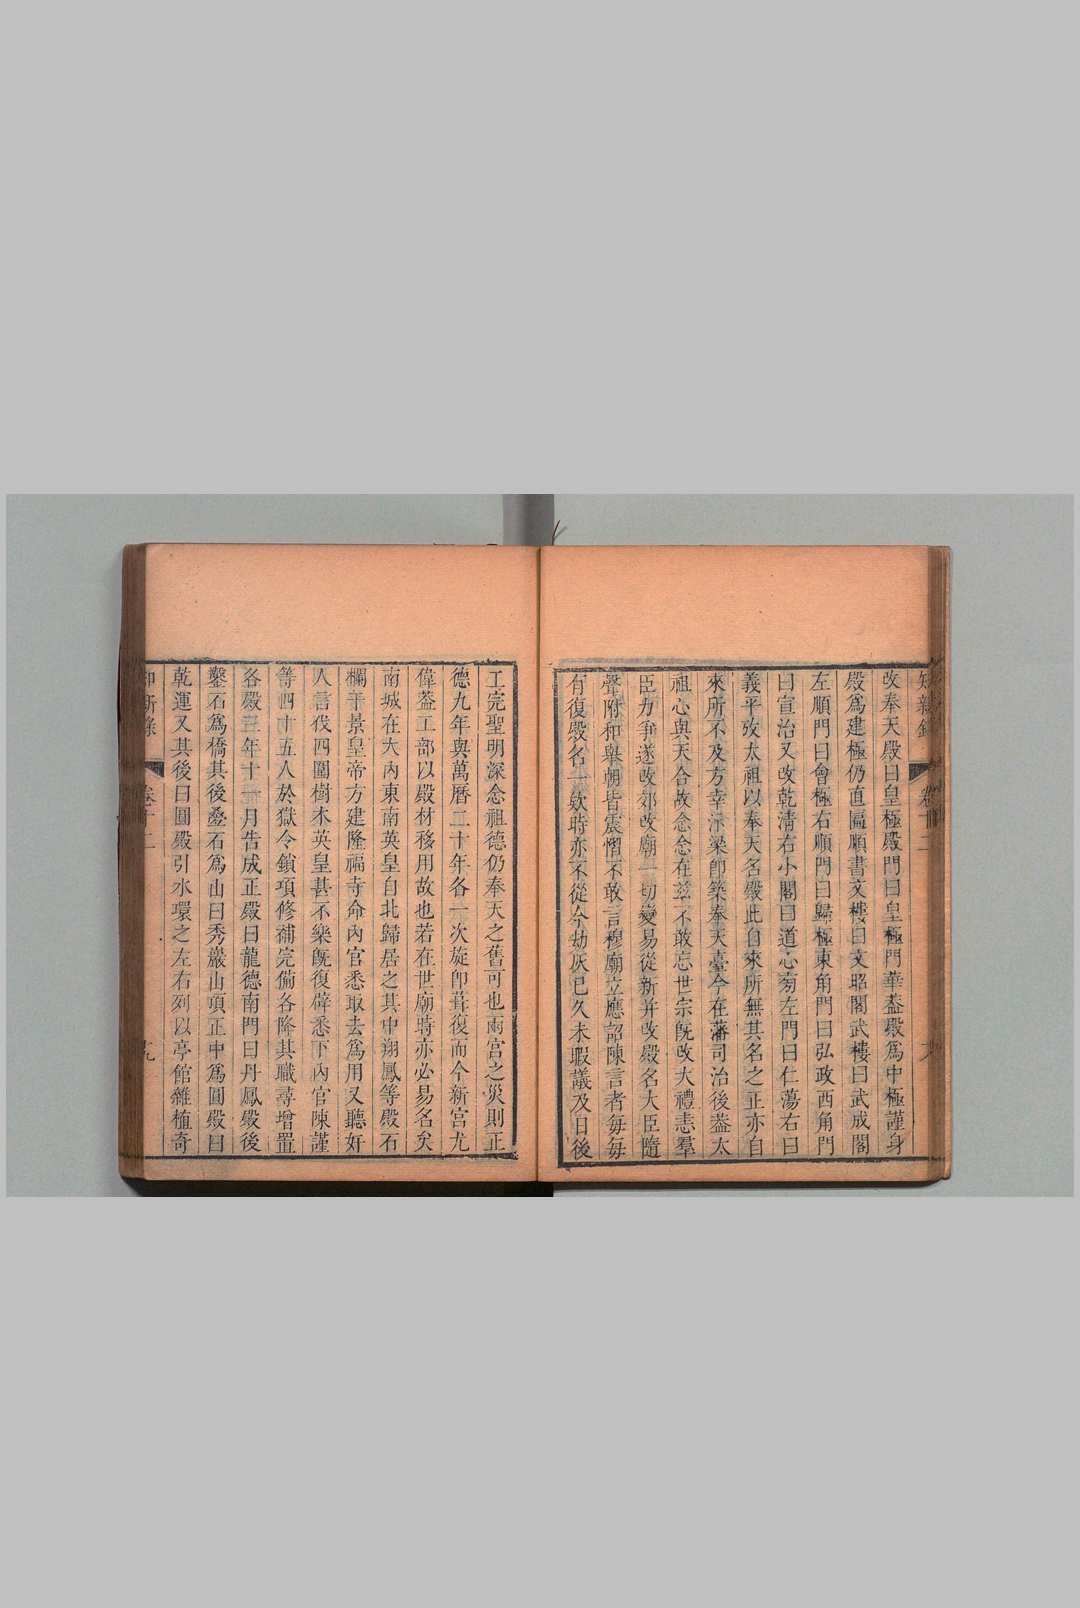 改奉天殿曰皇極殿門曰皇極門華蓋殿爲中極謹身
殿爲建極仍直匾順書文樓曰文昭閣武樓曰武成閣
左順門曰會極右順門曰歸極東角門曰弘政西角門
曰宣治又改乾清右小閣曰道心旁左門曰仁蕩右曰
義平攷太祖以奉天名殿此自來所無其名之正亦自
來所不及方幸汴梁卽築奉天臺今在藩司治後蓋太
祖心與天合故念念在茲不敢忘世宗旣改大禮恚羣
臣力爭遂改郊改廟一切變易從新并改殿名大臣隨
聲附和舉朝皆震慴不敢言穆廟立應詔陳言者每每
有復殿名一欵時亦不從今劫灰已久未暇議及日後
工完聖明深念祖德仍奉天之舊可也兩宮之災則正
德九年與萬曆二十年各一次旋卽葺復而今新宮尤
偉蓋工部以殿材移用故也若在世廟時亦必易名矣
南城在大內東南英皇自北歸居之其中翔鳳等殿石
欄干景皇帝方建隆福寺命內官悉取去爲用又聽奸
人言伐四圍樹木英皇甚不樂旣復辟悉下內官陳謹
等四十五人於獄令鎖項修補完備各降其職尋增置
各殿三年十一月告成正殿曰龍德南門曰丹鳳殿後
鑿石爲橋其後疊石爲山曰秀巖山頂正中爲圓殿曰
乾運又其後曰圓殿引水環之左右列以亭館雜植奇
卷十二 九